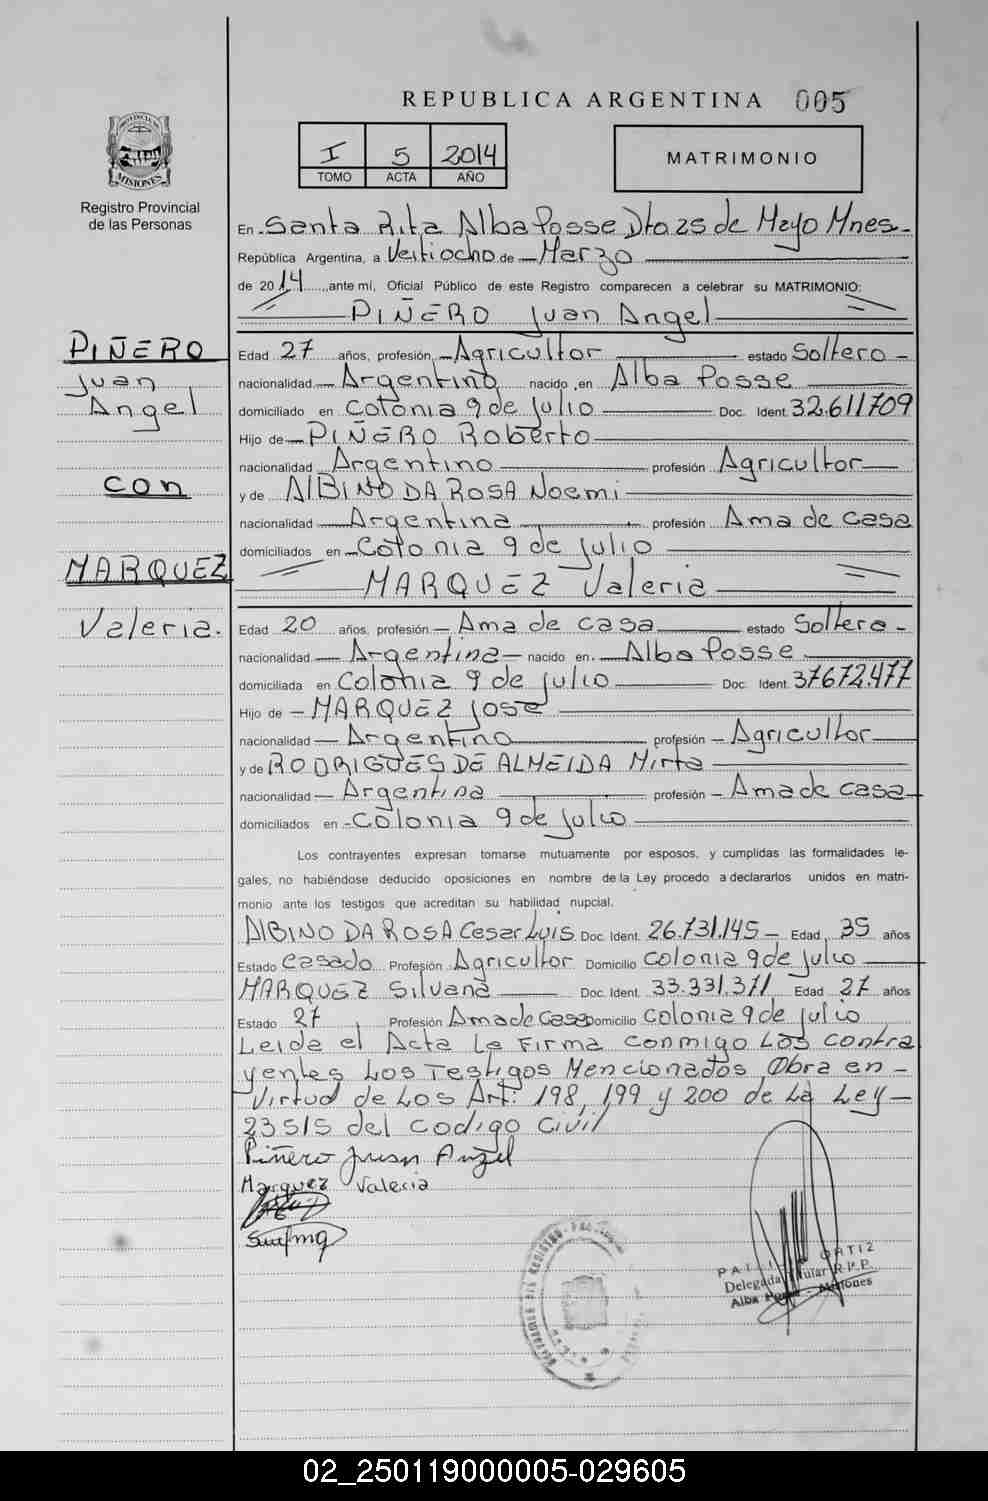 REPUBLICA ARGENTINA 005
I 5 2014
TOMO ACTA AÑO
MATRIMONIO
PROVINCIA DE
MISIONES
Registro Provincial
de las Personas
En Santa Rita Alba Posse Dto 25 de Mayo Mnes
República Argentina, a Veitiocho de Marzo
de 2014 ante mí, Oficial Público de este Registro comparecen a celebrar su MATRIMONIO:
PIÑERO Juan Angel
PIÑERO
Juan
Angel
con
MARQUEZ
Valeria.
Edad 27 años, profesión, Agricultor estado Soltero
nacionalidad Argentino nacido en Alba Posse
domiciliado en Colonia 9 de Julio Doc. Ident. 32.611709
Hijo de PIÑERO Roberto
nacionalidad Argentino profesión Agricultor
y de AlBINO DA ROSA Noemi
nacionalidad Argentina profesión Ama de casa
domiciliados en Colonia 9 de Julio
MARQUEZ Valeria
Edad 20 años, profesión Ama de casa estado Soltera
nacionalidad Argentina nacido en. Alba Posse
domiciliada en Colonia 9 de Julio Doc. Ident. 37672.477
Hijo de MARQUEZ José
nacionalidad Argentino profesión Agricultor
y de RODRIGUES DE ALMEIDA Mirta
nacionalidad Argentina profesión Ama de casa
domiciliados en Colonia 9 de Julio
Los contrayentes expresan tomarse mutuamente por esposos, y cumplidas las formalidades le-
gales, no habiéndose deducido oposiciones en nombre de la Ley procedo a declararlos unidos en matri-
monio ante los testigos que acreditan su habilidad nupcial.
AlBINO DA ROSA Cesar Luis Doc. Ident. 26.731.145 Edad 35 años
Estado Casado Profesión Agricultor Domicilio Colonia 9 de Julio
MARQUEZ Silvana Doc. Ident. 33.331.371 Edad 27 años
Estado 27 Profesión Ama de Casa Domicilio Colonia 9 de Julio
Leida el Acta La Firma conmigo Los contra
yentes Los Testigos Mencionados Obra en
Virtud de Los Art: 198, 199 y 200 de La Ley
23515 del Codigo Civil
Piñero Juan Angel
Marquez Valeria
ORTIZ
Delegada Titular R.P.P.
Alba Posse - Misiones
02_250119000005-029605